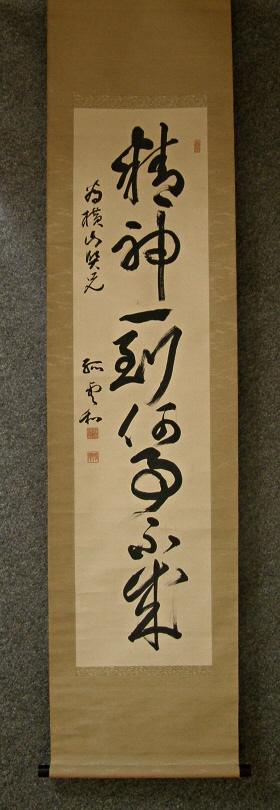 精神一到何事不成
為横山賢兄
孤雲和